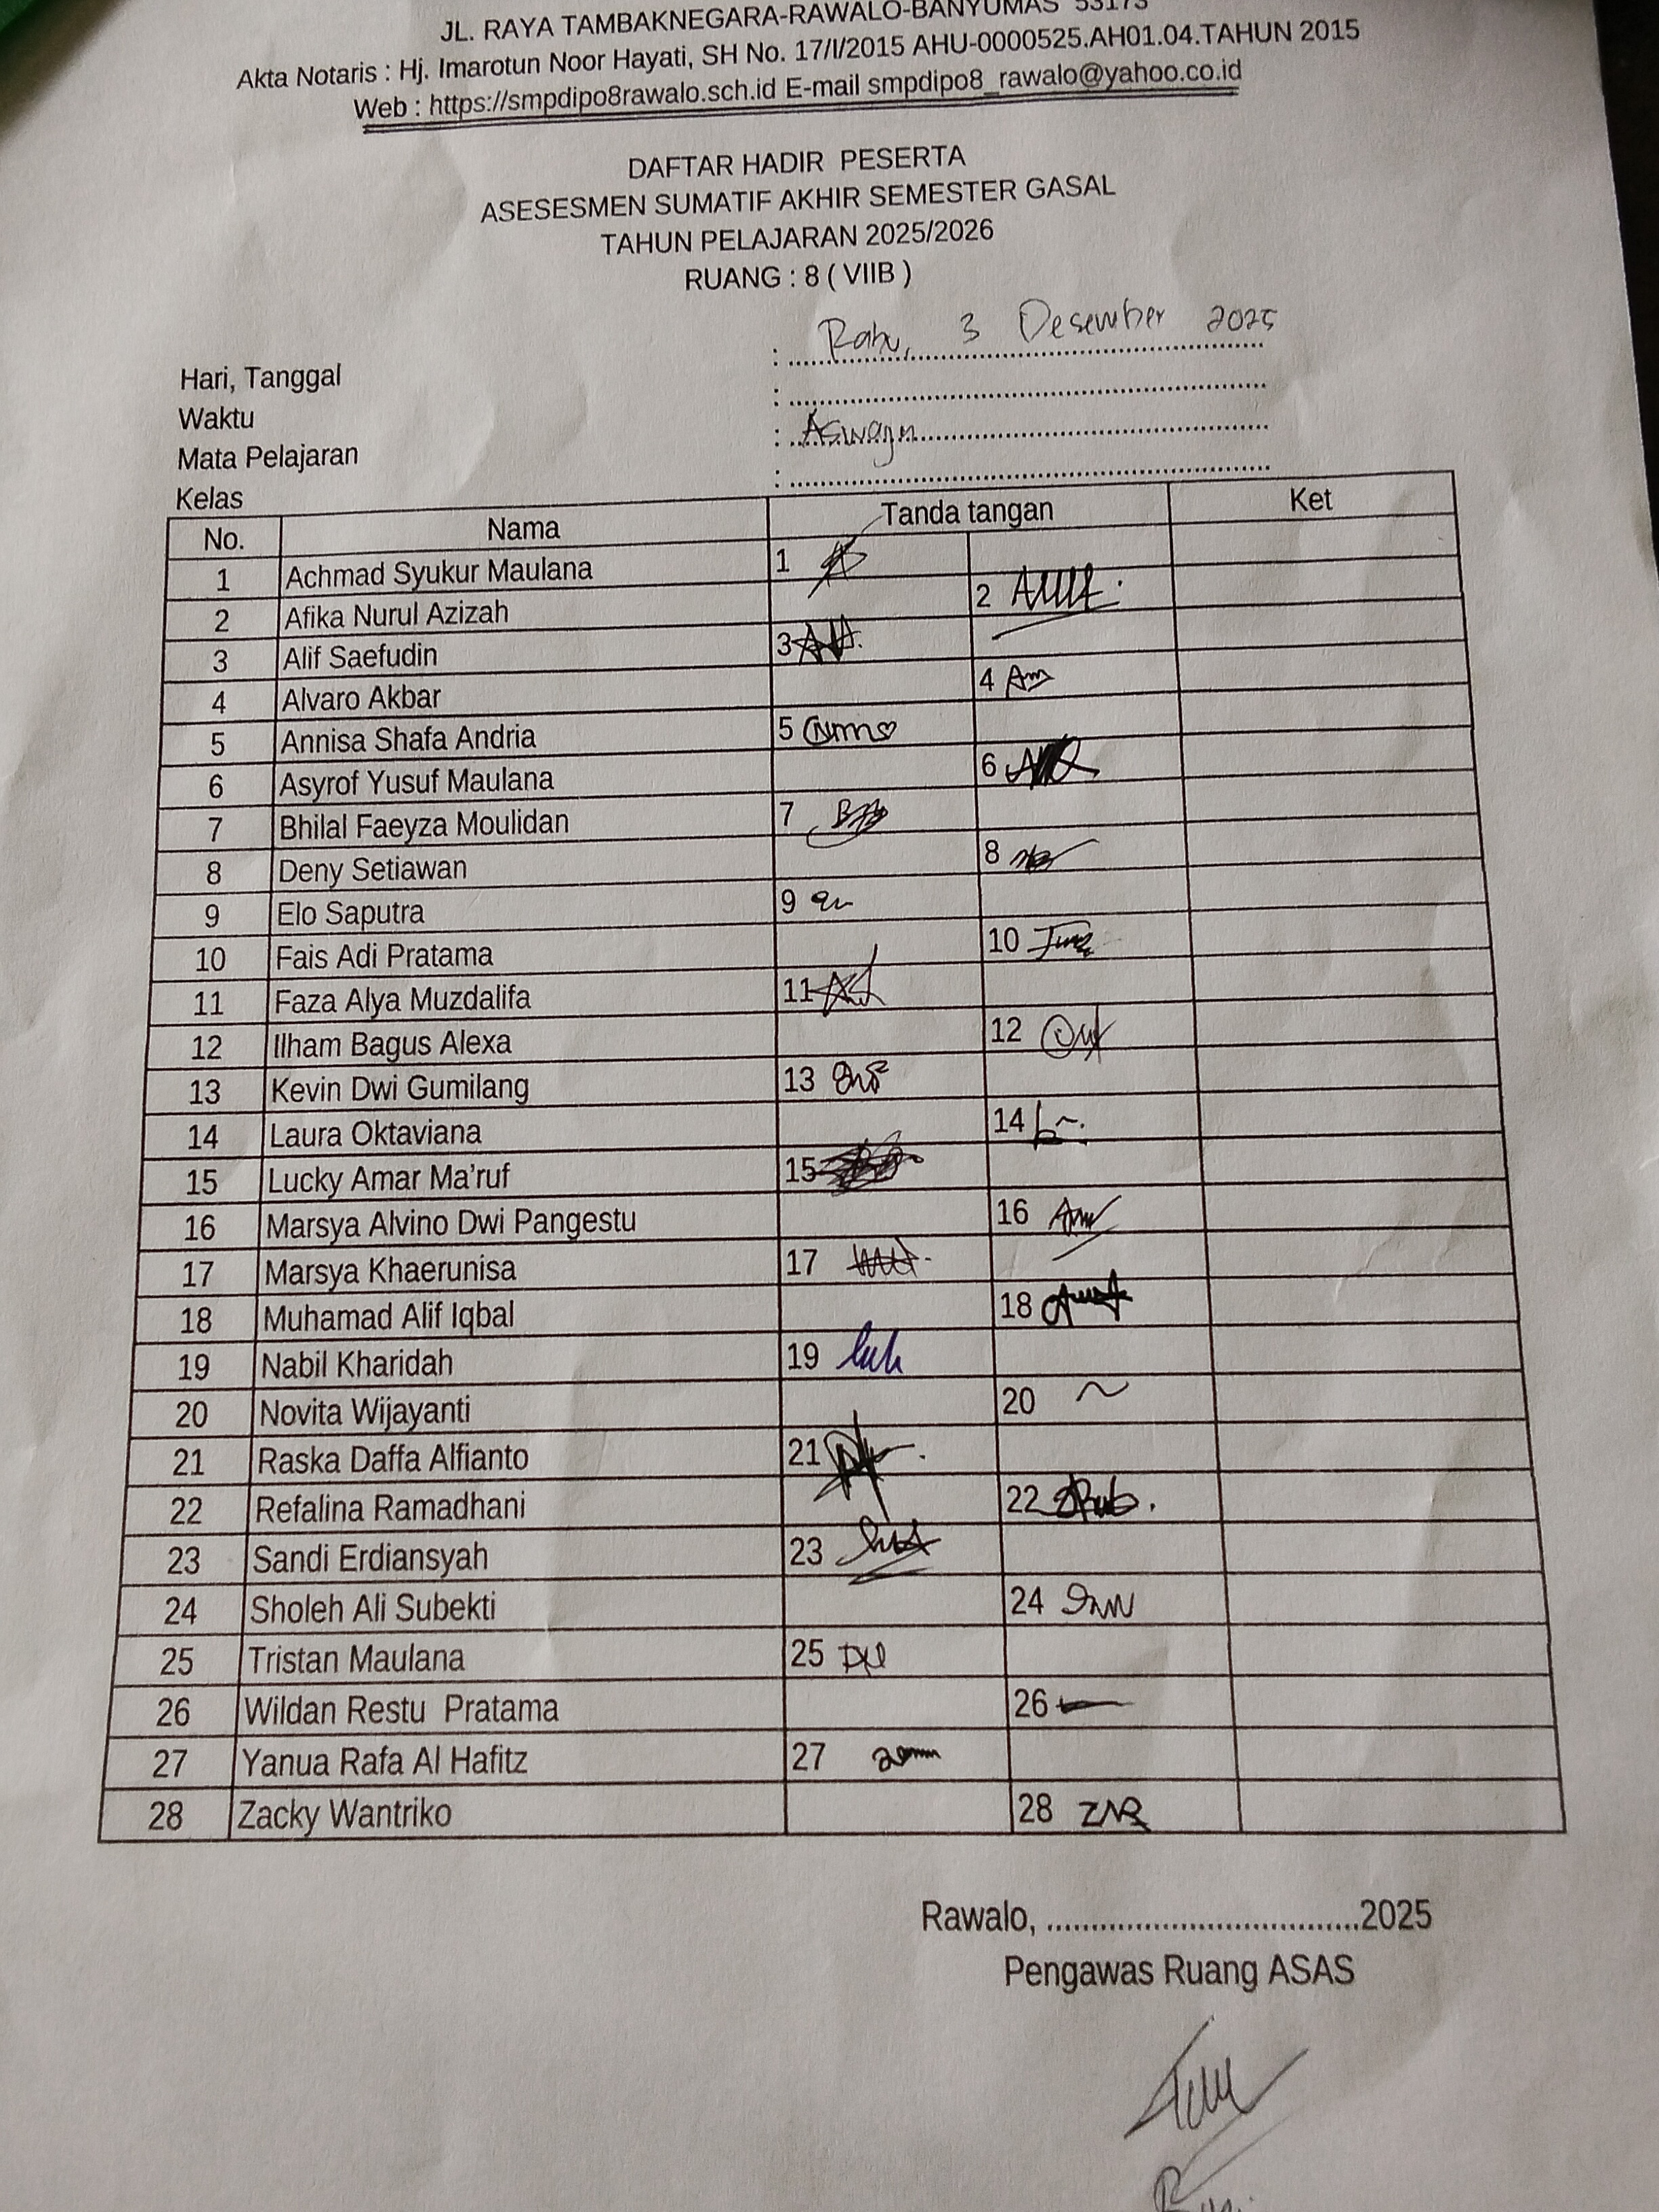 JL. RAYA TAMBAKNEGARA-RAWALO-BANYUMAS 53173
Akta Notaris : Hj. Imarotun Noor Hayati, SH No. 17/I/2015 AHU-0000525.AH01.04.TAHUN 2015
Web : https://smpdipo8rawalo.sch.id E-mail smpdipo8_rawalo@yahoo.co.id
DAFTAR HADIR PESERTA
ASESESMEN SUMATIF AKHIR SEMESTER GASAL
TAHUN PELAJARAN 2025/2026
RUANG : 8 ( VIIB )
Hari, Tanggal : Rabu, 3 Desember 2025
Waktu :
Mata Pelajaran : Aswaja
Kelas :
No. Nama Tanda tangan Ket
1 Achmad Syukur Maulana 1
2 Afika Nurul Azizah 2
3 Alif Saefudin 3
4 Alvaro Akbar 4
5 Annisa Shafa Andria 5
6 Asyrof Yusuf Maulana 6
7 Bhilal Faeyza Moulidan 7
8 Deny Setiawan 8
9 Elo Saputra 9
10 Fais Adi Pratama 10
11 Faza Alya Muzdalifa 11
12 Ilham Bagus Alexa 12
13 Kevin Dwi Gumilang 13
14 Laura Oktaviana 14
15 Lucky Amar Ma'ruf 15
16 Marsya Alvino Dwi Pangestu 16
17 Marsya Khaerunisa 17
18 Muhamad Alif Iqbal 18
19 Nabil Kharidah 19
20 Novita Wijayanti 20
21 Raska Daffa Alfianto 21
22 Refalina Ramadhani 22
23 Sandi Erdiansyah 23
24 Sholeh Ali Subekti 24
25 Tristan Maulana 25
26 Wildan Restu Pratama 26
27 Yanua Rafa Al Hafitz 27
28 Zacky Wantriko 28
Rawalo, ....................................2025
Pengawas Ruang ASAS